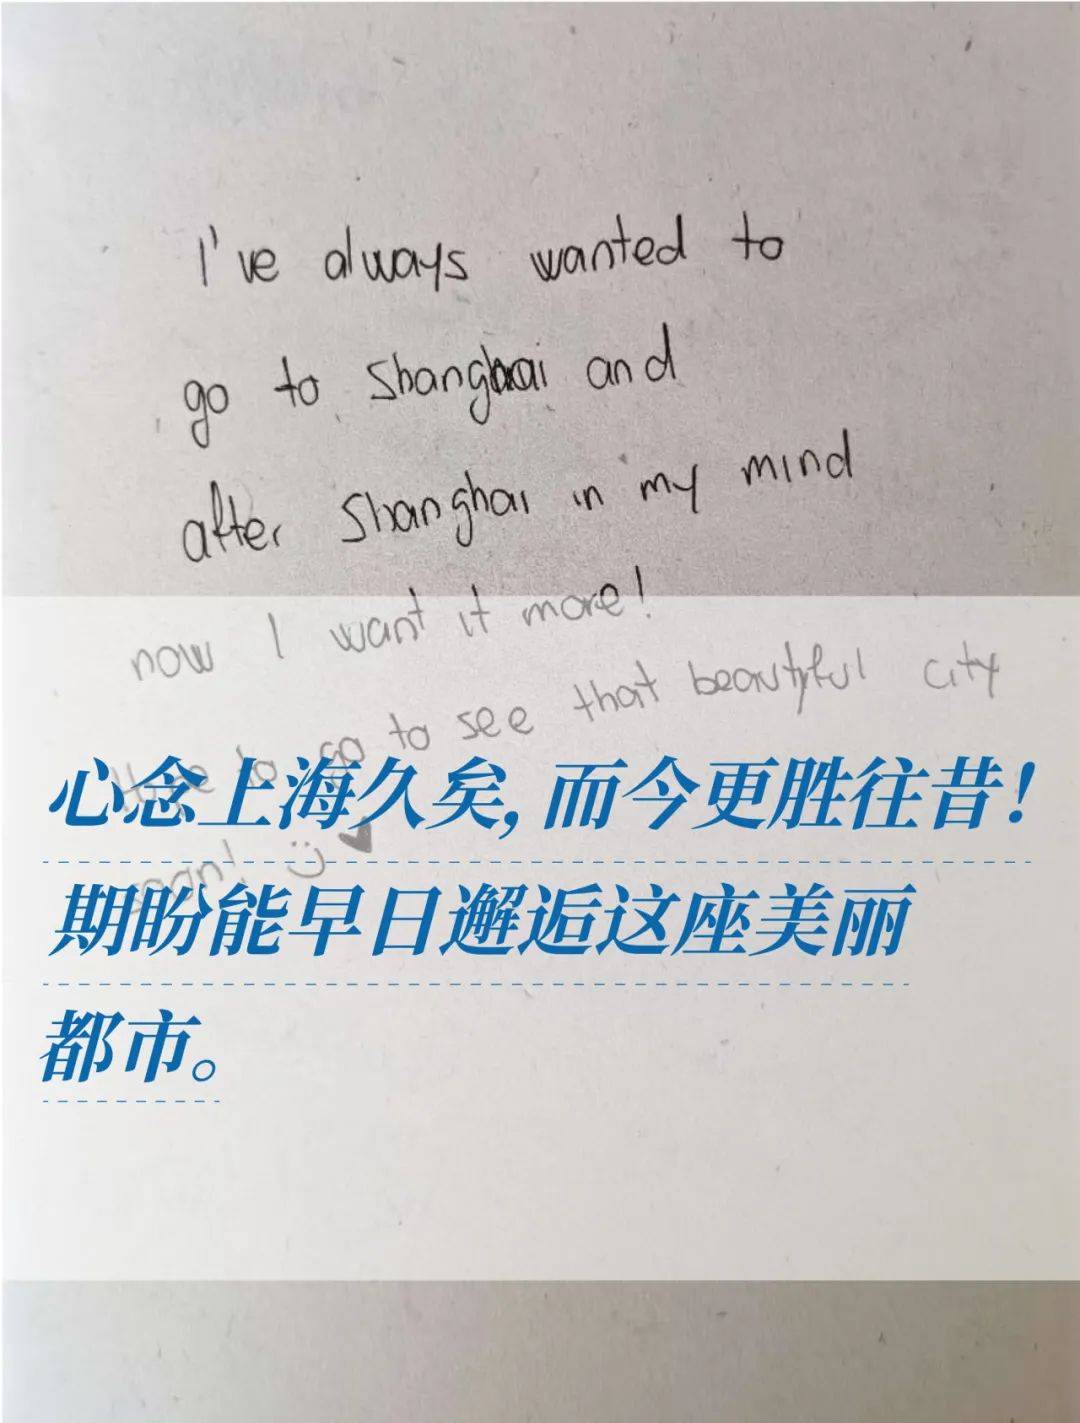 I've always wanted to
go to Shanghai and
after Shanghai in my mind
now I want it more!
Hope to go to see that beautyful city
soon!
心念上海久矣，而今更胜往昔！
期盼能早日邂逅这座美丽
都市。